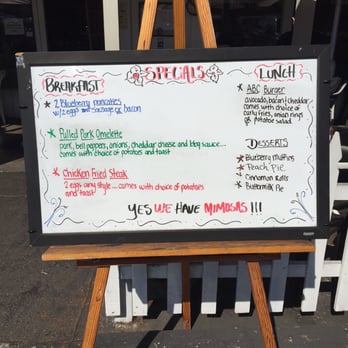 SPECIALS
BREAKFAST
2 Blueberry pancakes
w/2 eggs and sausage or bacon
Pulled Pork Omelette
pork, bell peppers, onions, cheddar cheese and bbq sauce...
comes with choice of potatoes and toast
Chicken Fried Steak
2 eggs any style... comes with choice of potatoes
and toast
LUNCH
ABC Burger
avocado, bacon, cheddar
comes with choice of
curly fries, onion rings
or potato salad
DESSERTS
Blueberry Muffins
Peach Pie
Cinnamon Rolls
Buttermilk Pie
YES WE HAVE MIMOSAS !!!